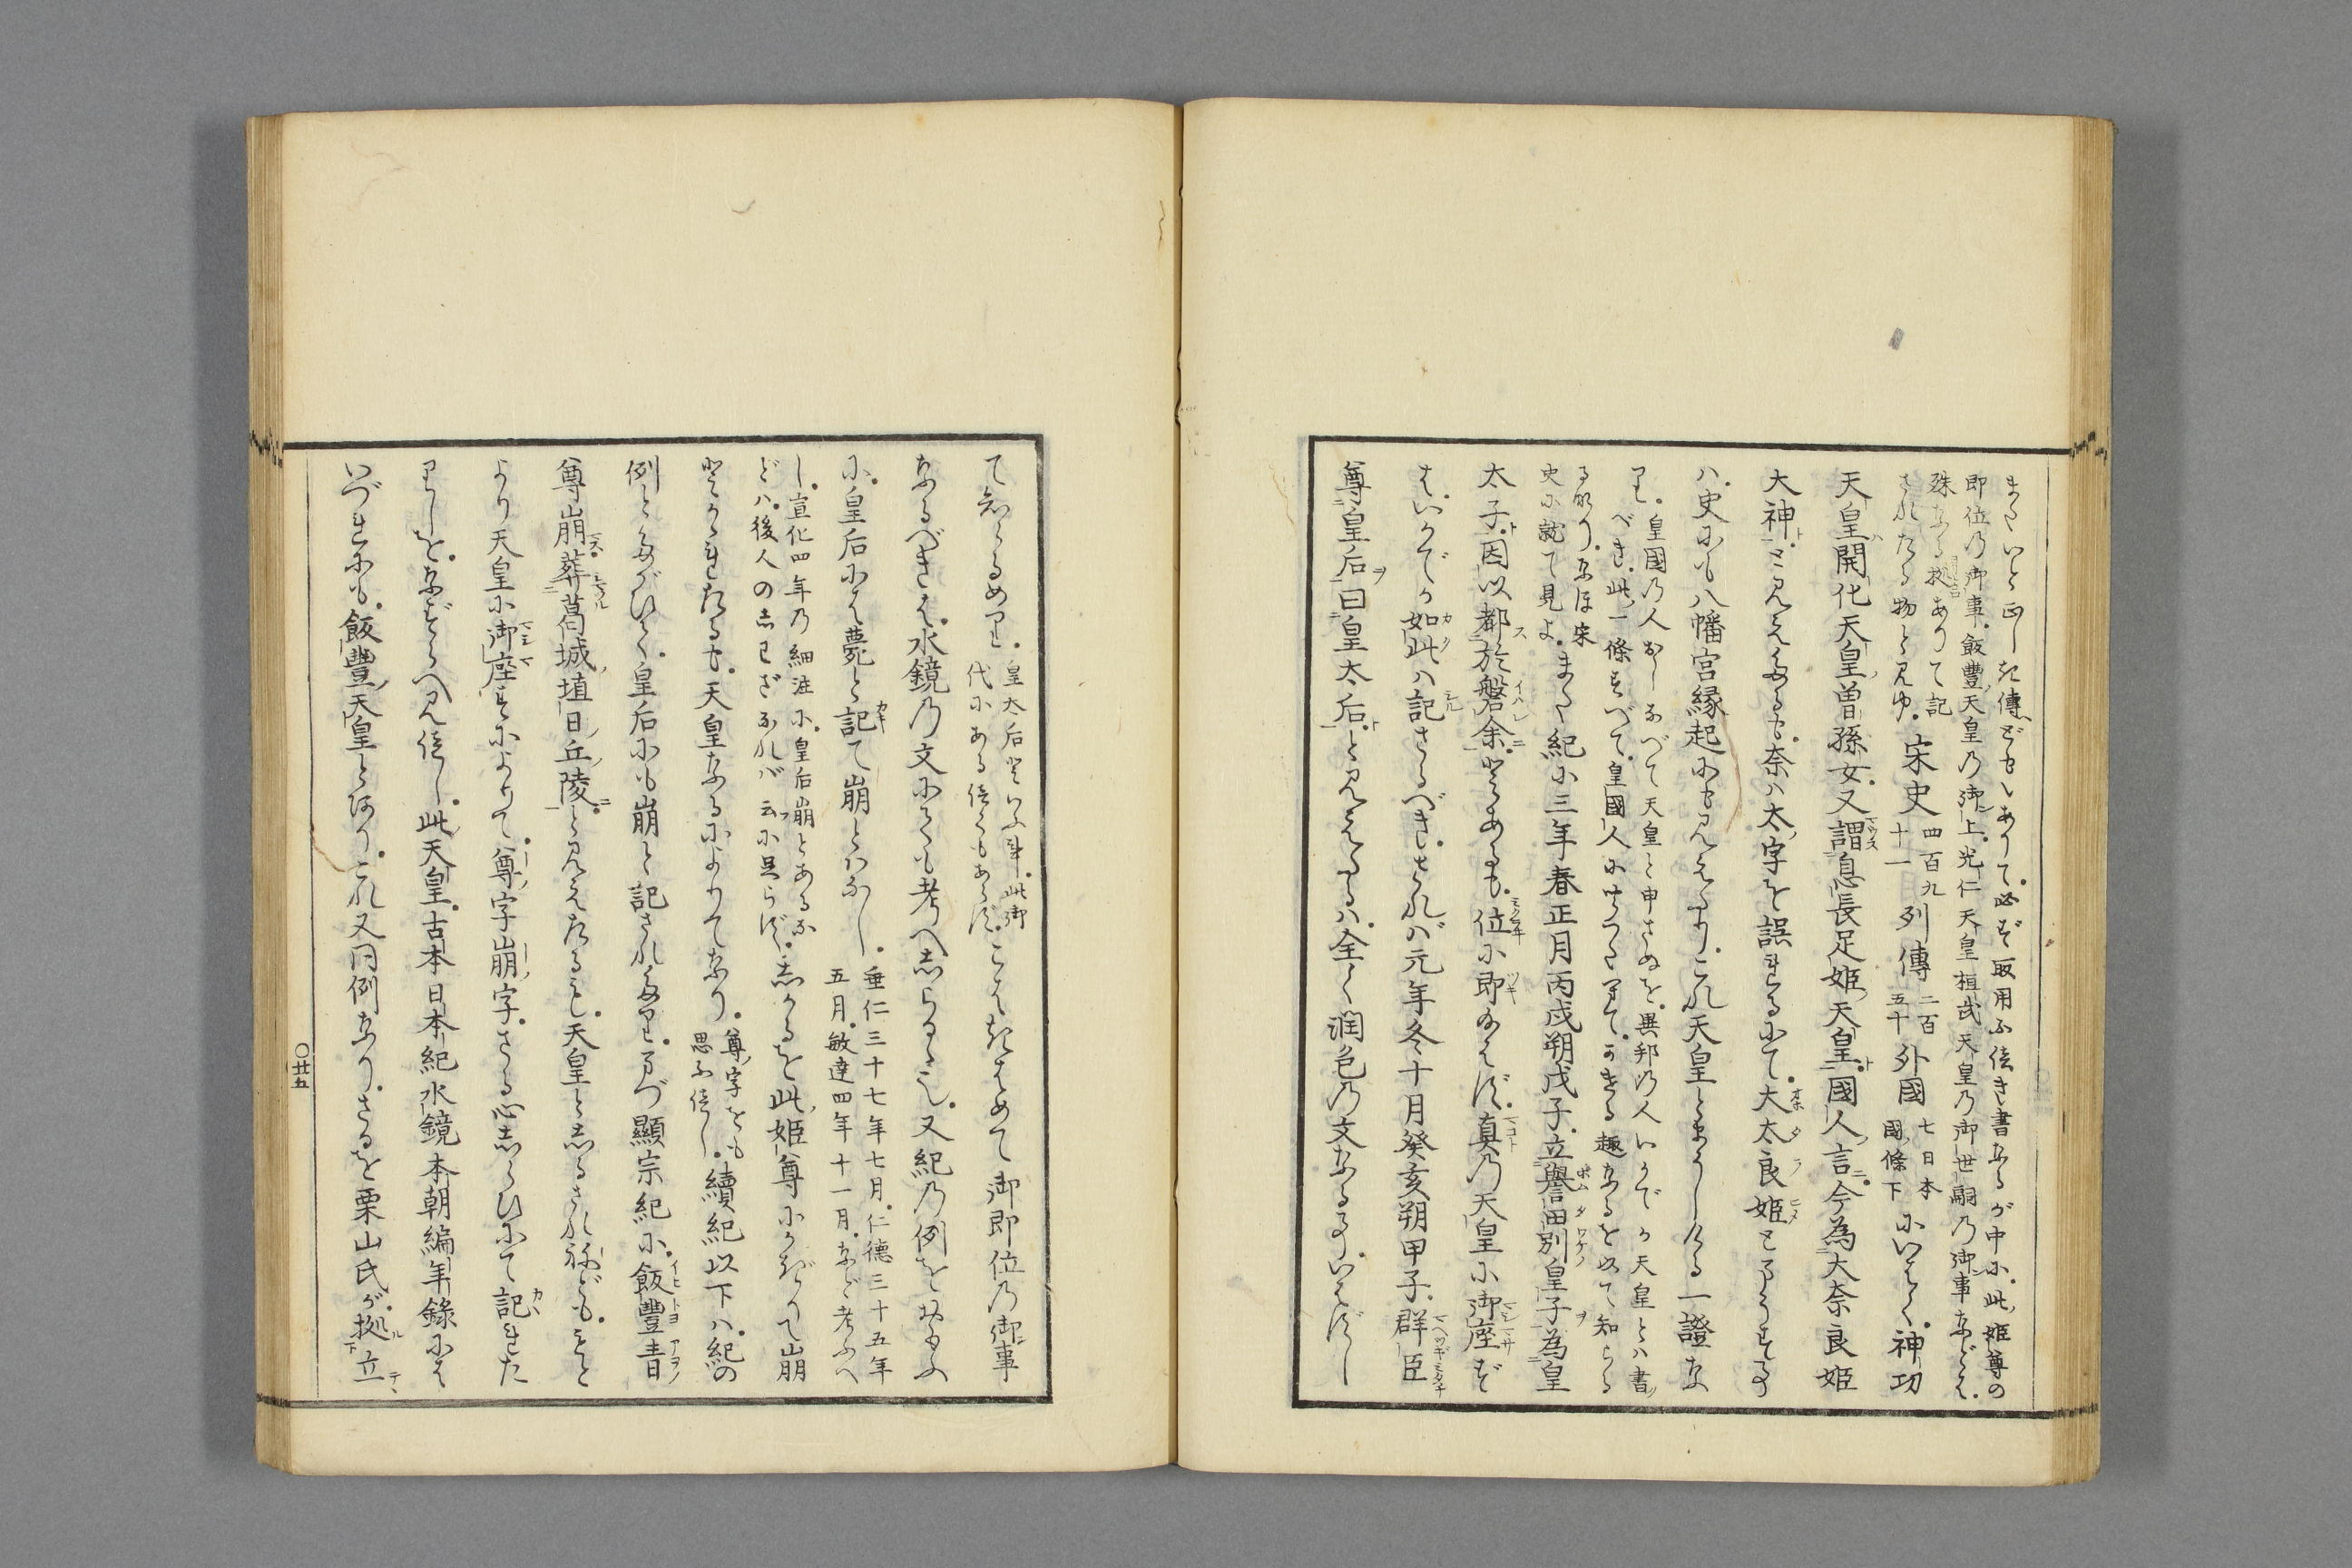 またいと正しき傳どもゝありて必ず取用ふ倍き書なるが中に此姫尊の
即位乃御事飯豐天皇乃御上光仁天皇桓武天皇乃御世嗣乃御事などは
殊なる拠ありて記
されたる物と見ゆ宋史四百九十一列傳二百五十外國七日本國條下にいはく神功
天皇開化天皇曽孫女又謂息長足姫天皇國人言今為大奈良姫
大神とみえたるも奈ハ太字を誤れるにて大太良姫とまうす事
ハ史にも八幡宮縁起にもみえたりこれ天皇とまうしける一證な
り皇國乃人おしなべて天皇と申さぬを異邦乃人いかでか天皇とハ書
べき此一條すべて皇國人にせうたりてかきる趣なるを以て知らる
るなりなほ宋
史に就て見よまた紀に三年春正月丙戍朔戊子立譽田別皇子為皇
太子因以都於磐余とあるも位に即給はず真乃天皇に御座ず
はいかでか如此ハ記さるべきされば元年冬十月癸亥朔甲子群臣
尊皇后曰皇太后と見えたるハ全く潤色乃文なる事いはずし
て知らるめり皇太后といふ事此御
代にある倍くもあらずこはきはめて御即位乃御事
なるべきは水鏡乃文にても考へ志らるゝ也又紀乃例をおもふ
に皇后にハ薨と記て崩とハなし垂仁三十七年七月仁德三十五年
五月敏達四年十一月など考ふへ
し宣化四年乃細註に皇后崩とあるな
どハ後人の志わざなれバ云に足らず志かるを此姫尊にかぎりて崩
とかきれたるも天皇なるによりてなり尊字をも
思ふ倍し續紀以下ハ紀の
例とたがひて皇后にも崩と記されたりまづ顯宗紀に飯豐青
尊崩葬葛城埴日丘陵と見えたるこし天皇と志るされねどももと
より天皇に御座すによりて尊字崩字さる心志らひにて記れた
りしをなずらへ見倍し此天皇古本日本紀水鏡本朝編年錄には
いづれにも飯豐天皇とありこれ又同例なりさるを栗山氏が拠立
〇廿五